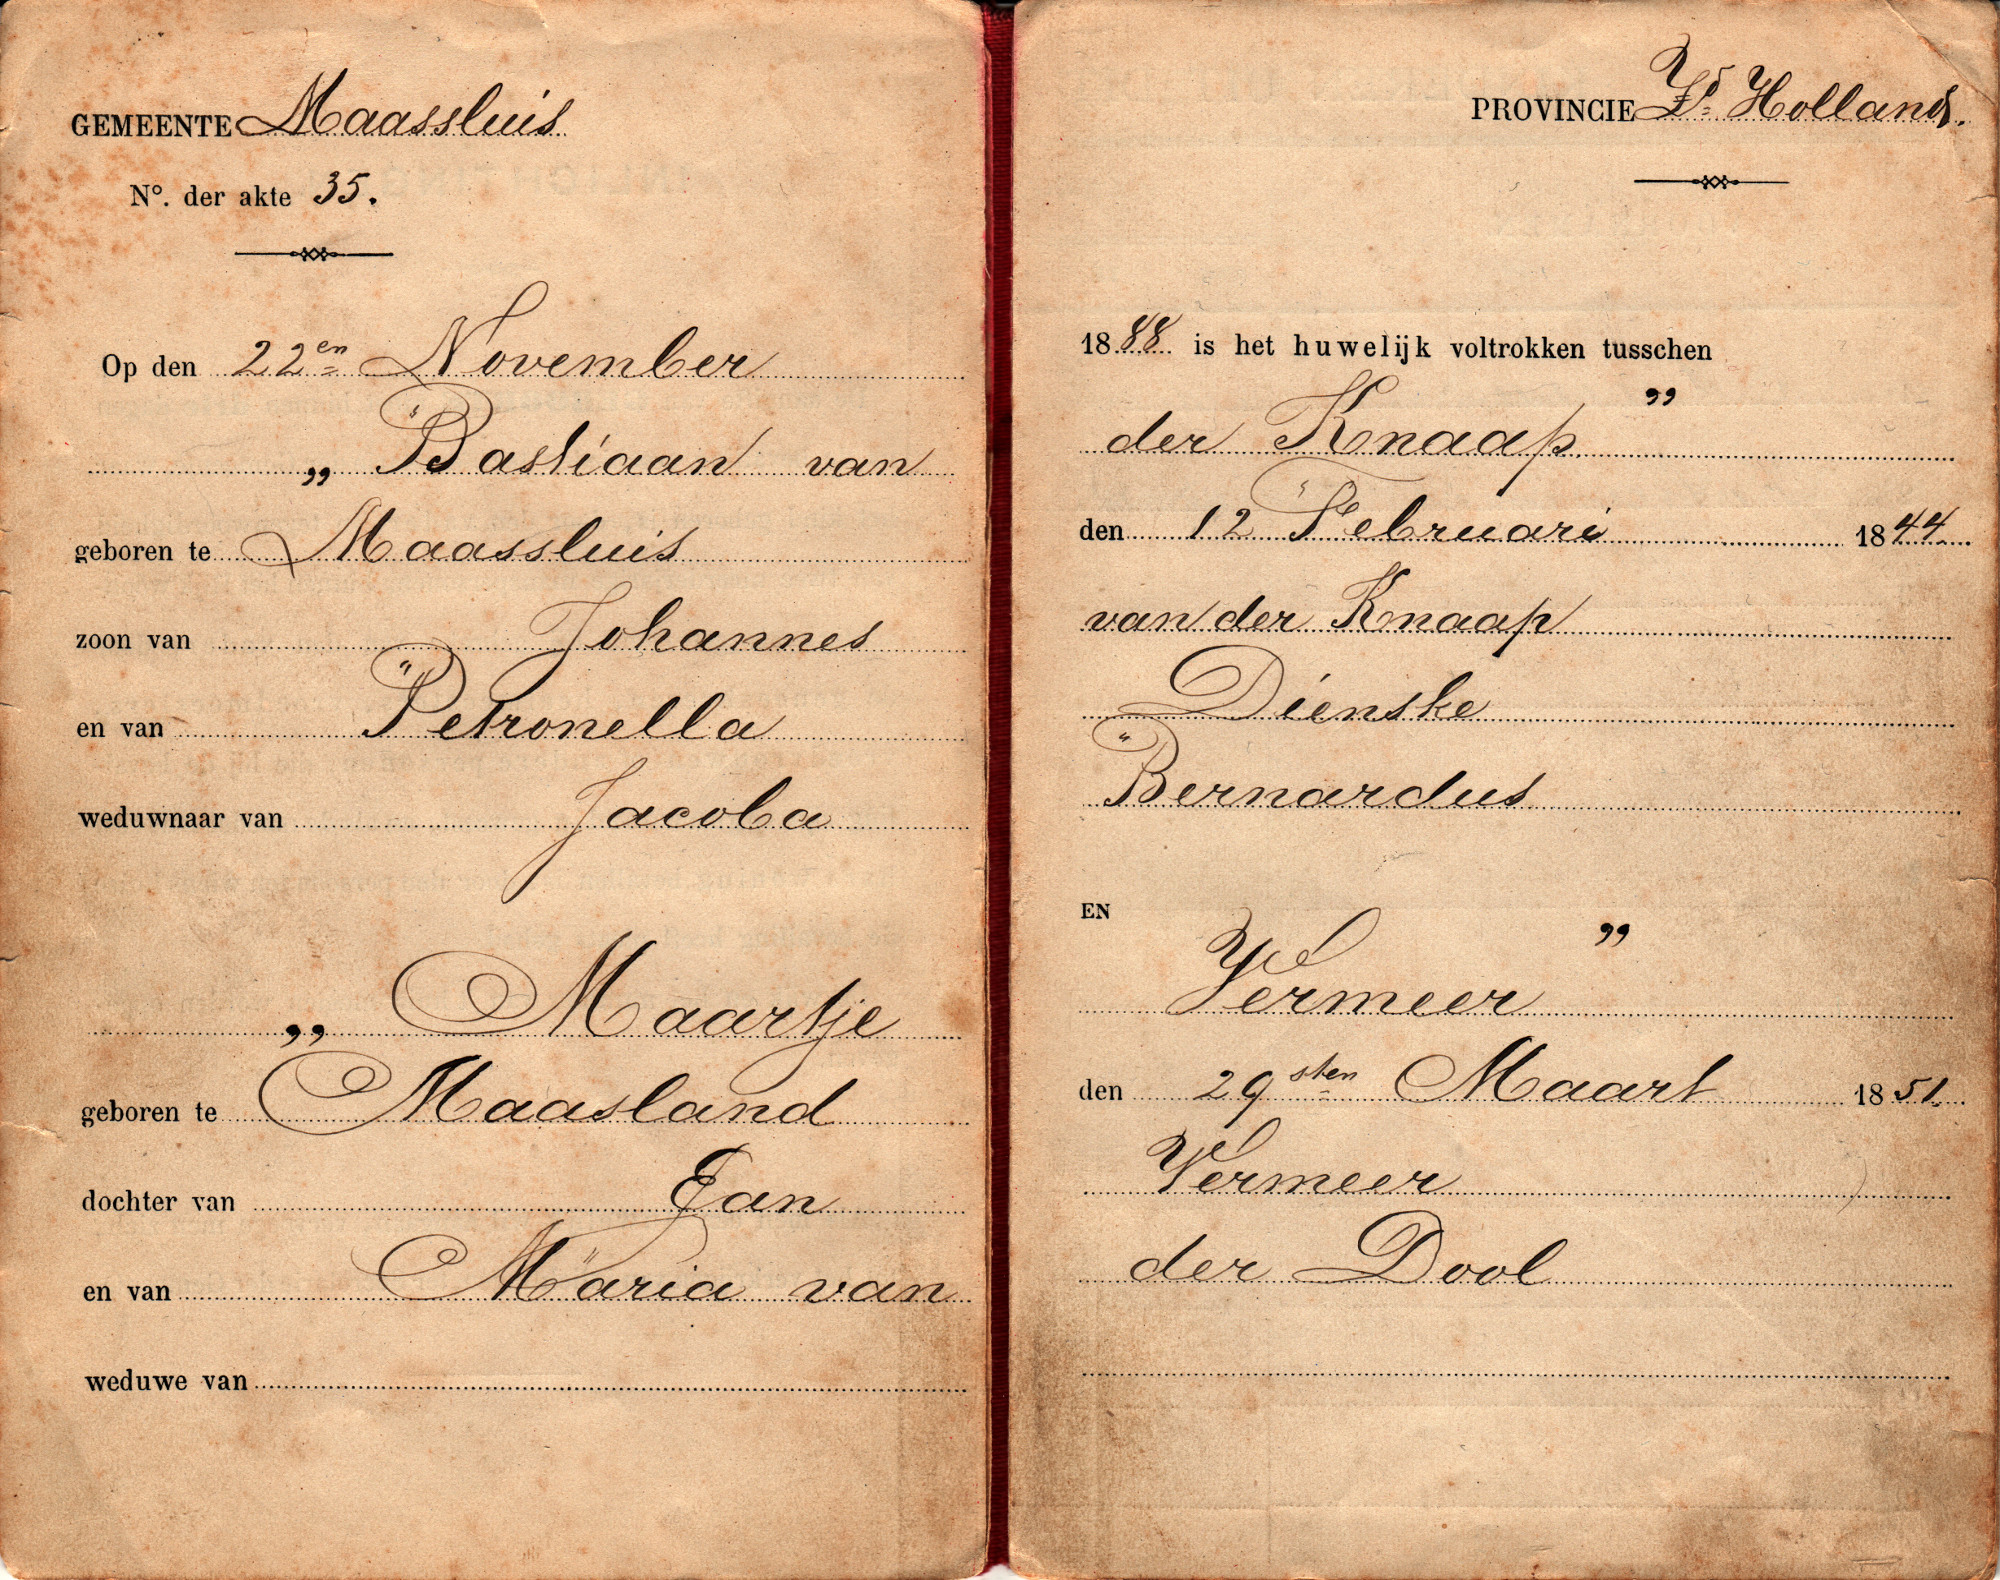 GEMEENTE Maassluis
Nº. der akte 35.
Op den 22en November
„ Bastiaan van
geboren te Maassluis
zoon van Johannes
en van Petronella
weduwnaar van Jacoba
„ Maartje
geboren te Maasland
dochter van Jan
en van Maria van
weduwe van
PROVINCIE Zd. Holland.
1888 is het huwelijk voltrokken tusschen
der Knaap ”
den 12 Februari 1844
van der Knaap
Dienske
Bernardus
EN
Vermeer ”
den 29sten Maart 1851.
Vermeer
der Dool